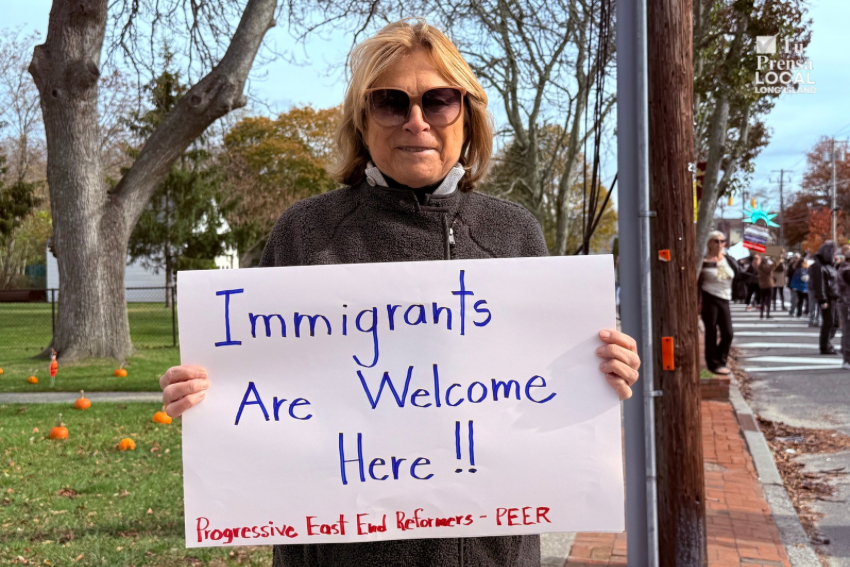 Tu
Prensa
LOCAL
LONG ISLAND
Immigrants
Are Welcome
Here !!
Progressive East End Reformers - PEER